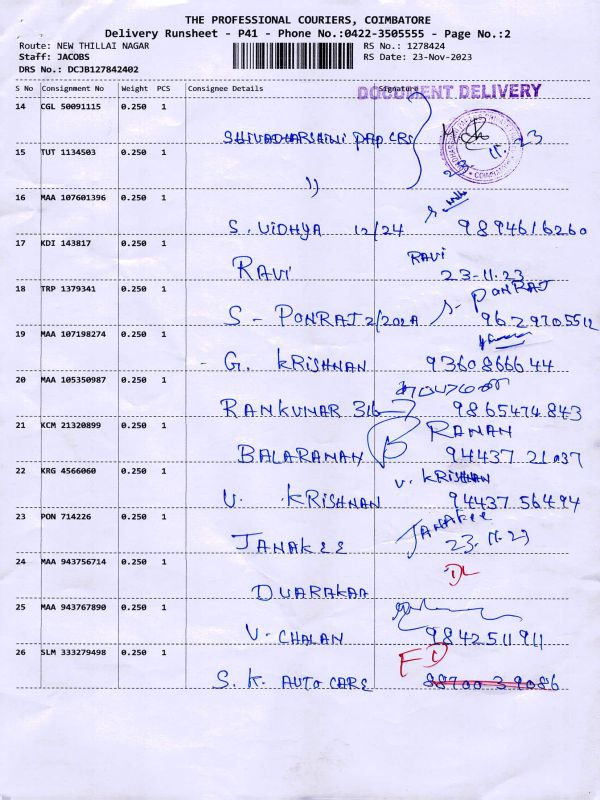 THE PROFESSIONAL COURIERS, COIMBATORE
Delivery Runsheet - P41 - Phone No.:0422-3505555 - Page No.:2
Route: NEW THILLAI NAGAR RS No.: 1278424
Staff: JACOBS RS Date: 23-Nov-2023
DRS No.: DCJB127842402
S No Consignment No Weight PCS Consignee Details Signature
DOCUMENT DELIVERY
14 CGL 50091115 0.250 1
SHIVADHARSHINI
23
15 TUT 1134503 0.250 1
11
16 MAA 107601396 0.250 1
S. VIDHYA 12/24 9894616260
17 KDI 143817 0.250 1 RAVI
RAVI 23-11.23
18 TRP 1379341 0.250 1 S- PONRAJ
S - PONRAJ 2/202A 9629705512
19 MAA 107198274 0.250 1
- G. KRISHNAN 9360866644
20 MAA 105350987 0.250 1
RANKUNAR 316 9865474843
21 KCM 21320899 0.250 1 RANAN
BALARANAN 94437 21037
22 KRG 4566060 0.250 1 V. KRISHNAN
V. KRISHNAN 94437 56494
23 PON 714226 0.250 1 JANAKEE
JANAKEE 23.11.23
24 MAA 943756714 0.250 1 DL
DUARAKAA
25 MAA 943767890 0.250 1
V-CHALAN 9842511911
26 SLM 333279498 0.250 1 FD
S.K. AUTO CARE 88700 39086